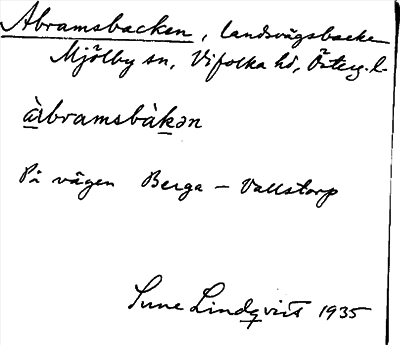 Abramsbacken, landsvägsbacke
Mjölby sn, Vifolka hd, Österg. l.
àbramsbàkən
På vägen Berga – Vallstorp
Sune Lindqvist 1935